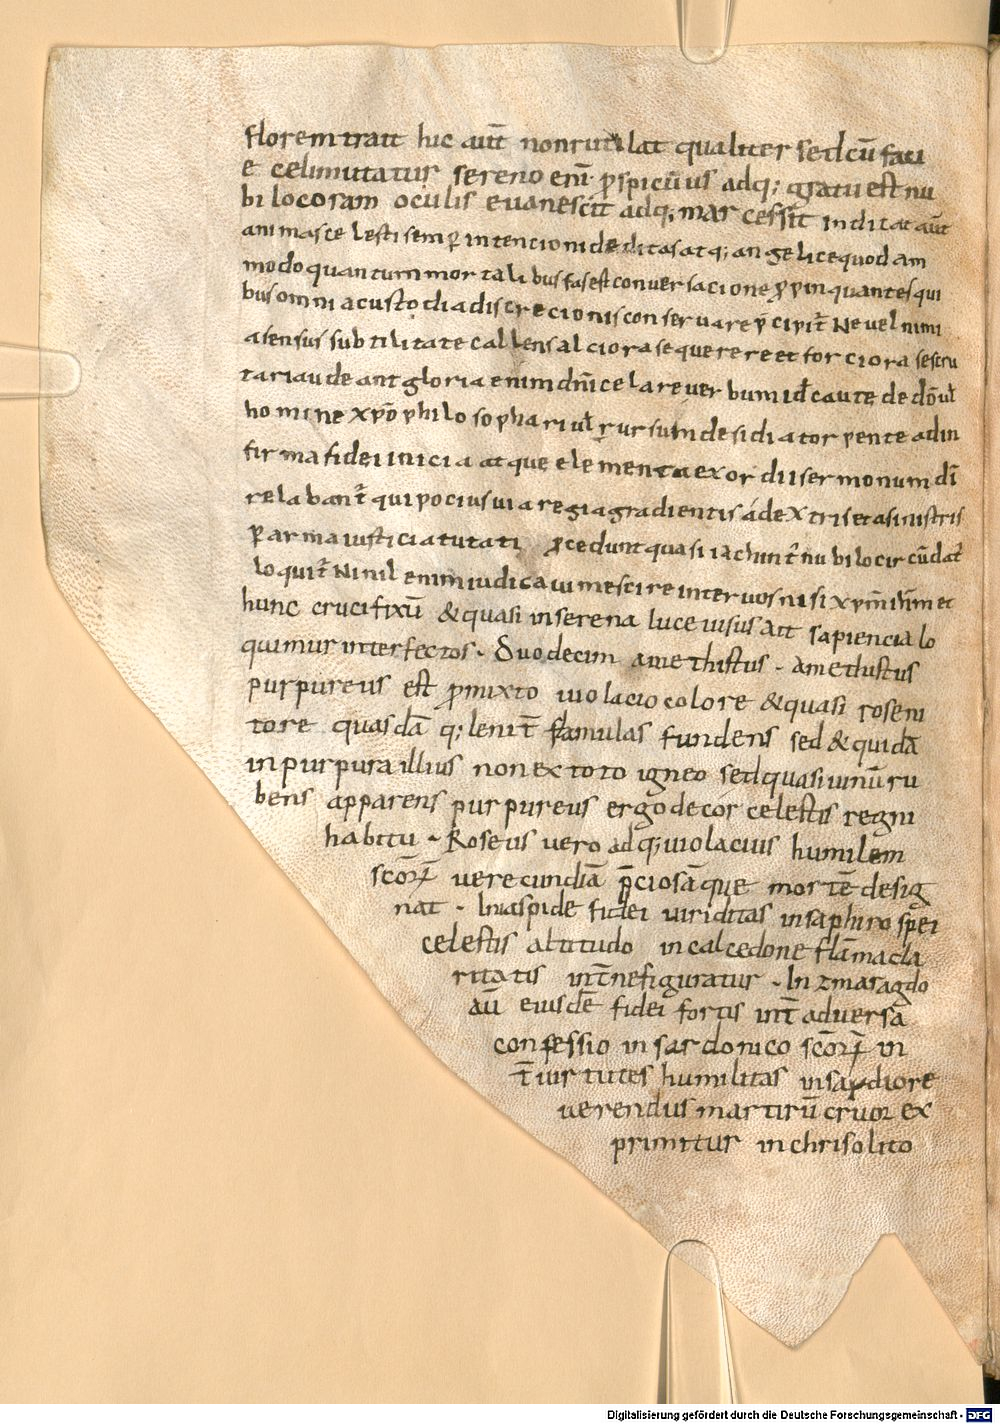 florem trait hic aut̄ non rutilat qualiter sed cū faci
e celi mutatur sereno eni ꝑspicuus adq; gratu est nu
bilo coram oculis euanescit adq; marcessit indicat aūt
animas celesti semꝑ intencioni deditas atq; angelice quodam
modo quantum mortalibus fas est conuersacione ꝓpinquantes qui
bus omni a custodia discrecionis conseruare p̄cipit̄ Ne uel nimi
a sensus subtilitate callens alciora se querere et forciora se scru
tari audeant gloria enim dn̄i celare uerbum id̄ caute de dō ul̄
homine xp̄o philosophari ul̄ rursum desidia torpente ad in
firma fidei inicia atque elementa exordii sermonum dī
relabant̄ qui pocius uia regia gradientis a dextris et a sinistris
ꝑ arma iusticia tutati ꝓcedunt quasi iachint̄ nubilo circūdat̄
loquit̄ Ninil enim iudicaui me scire inter uos nisi xp̄m ih̄m et
hunc crucifixū & quasi in serena luce uisus ait sapiencia lo
quimur inter fectos . Duodecim amethistus . amethistus
purpureus est ꝑmixto uiolacio colore & quasi roseni
tore quasdā q; lenit̄ flamulas fundens sed & quidā
in purpura illius non ex toto igneo sed quasi uinū ru
bens apparens purpureus ergo decor celestis regni
habitu . Roseus uero adq; uiolacius humilem
scōꝝ uerecundiā p̄ciosāque mortē desig
nat . In iaspide fidei uiriditas in saphiro spei
celestis altitudo in calcedone flāma cla
ritatis int̄ne figuratur . In zmaragdo
aū eiusdē fidei fortis int̄ aduersa
confessio in sardonico scōꝝ in
t̄ uirtutes humilitas in sardiore
uerendus martirū cruor ex
primitur in chrisolito
Digitalisierung gefördert durch die Deutsche Forschungsgemeinschaft - DFG